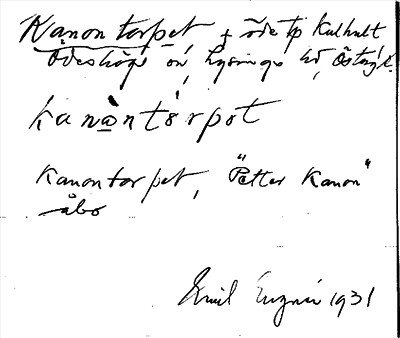 Kanontorpet † öde tp Kulhult
Ödeshögs sn, Lysings hd, Östergötl.
kanὰntórpət
Kanontorpet, "Petter Kanon"
åbo
Emil 1931